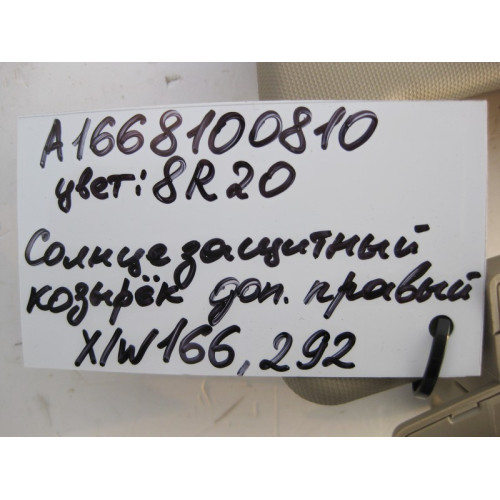 A1668100810
цвет: 8R20
Солнцезащитный
козырёк доп. правый
X/W166, 292